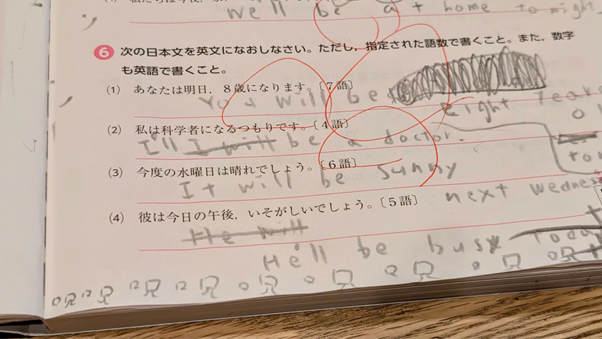 We'll be at home tonight.
6 次の日本文を英文になおしなさい。ただし，指定された語数で書くこと。また，数字
も英語で書くこと。
(1) あなたは明日，8歳になります。〔7語〕
You will be
eight years
(2) 私は科学者になるつもりです。〔4語〕
I'll I will be a doctor.
(3) 今度の水曜日は晴れでしょう。〔6語〕
It will be sunny
next Wednes
(4) 彼は今日の午後，いそがしいでしょう。〔5語〕
He will
He'll be busy today